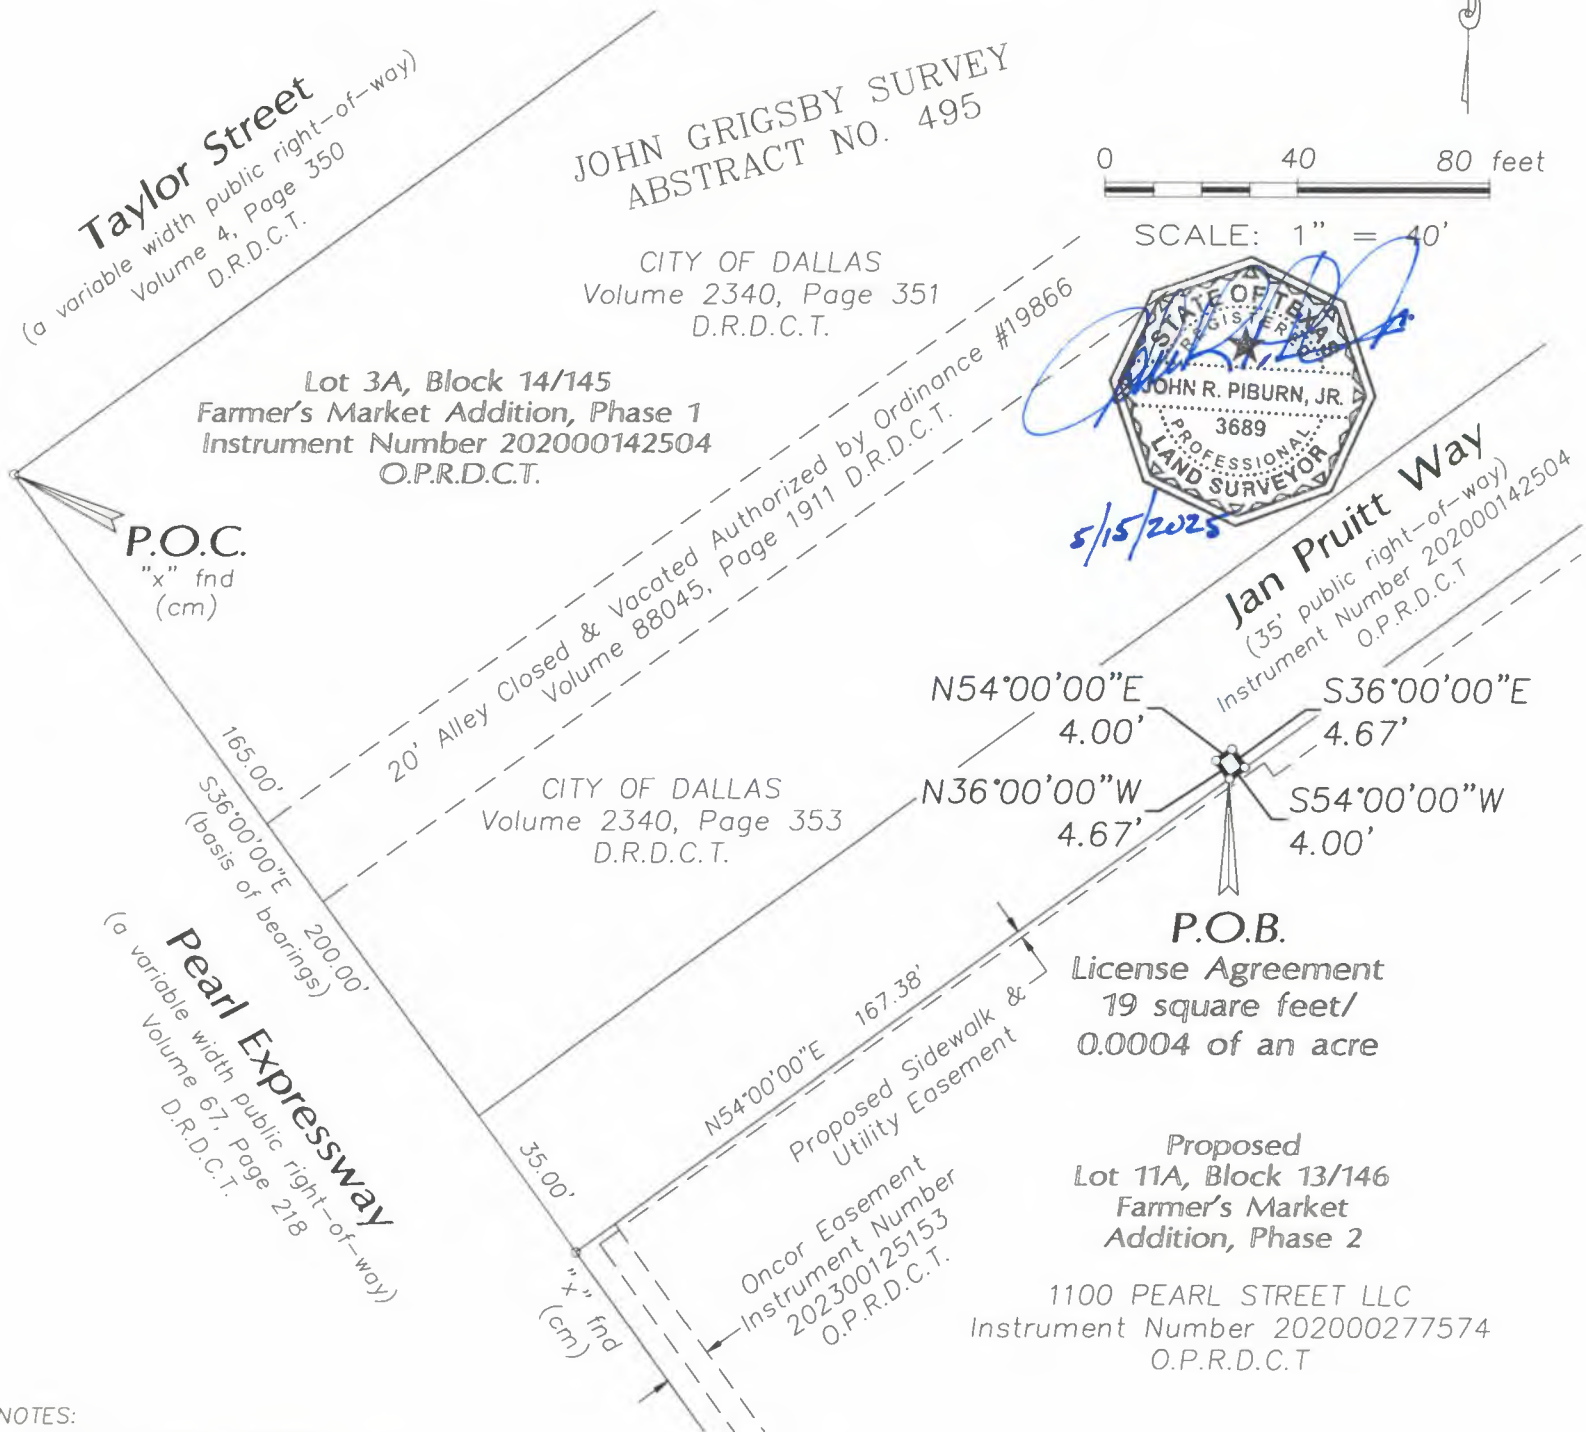 Taylor Street
(a variable width public right-of-way)
Volume 4, Page 350
D.R.D.C.T.
JOHN GRIGSBY SURVEY
ABSTRACT NO. 495
0 40 80 feet
SCALE: 1" = 40'
CITY OF DALLAS
Volume 2340, Page 351
D.R.D.C.T.
STATE OF TEXAS
REGISTERED
JOHN R. PIBURN, JR.
3689
PROFESSIONAL
LAND SURVEYOR
5/15/2025
Lot 3A, Block 14/145
Farmer's Market Addition, Phase 1
Instrument Number 202000142504
O.P.R.D.C.T.
P.O.C.
"x" fnd
(cm)
20' Alley Closed & Vacated Authorized by Ordinance #19866
Volume 88045, Page 1911 D.R.D.C.T.
Jan Pruitt Way
(35' public right-of-way)
Instrument Number 202000142504
O.P.R.D.C.T
N54°00'00"E
4.00'
S36°00'00"E
4.67'
N36°00'00"W
4.67'
S54°00'00"W
4.00'
165.00'
S36°00'00"E 200.00'
(basis of bearings)
CITY OF DALLAS
Volume 2340, Page 353
D.R.D.C.T.
P.O.B.
License Agreement
19 square feet/
0.0004 of an acre
Pearl Expressway
(a variable width public right-of-way)
Volume 67, Page 218
D.R.D.C.T.
N54°00'00"E 167.38'
Proposed Sidewalk &
Utility Easement
35.00'
"x" fnd
(cm)
Oncor Easement
Instrument Number
202300125153
O.P.R.D.C.T.
Proposed
Lot 11A, Block 13/146
Farmer's Market
Addition, Phase 2
1100 PEARL STREET LLC
Instrument Number 202000277574
O.P.R.D.C.T
NOTES: